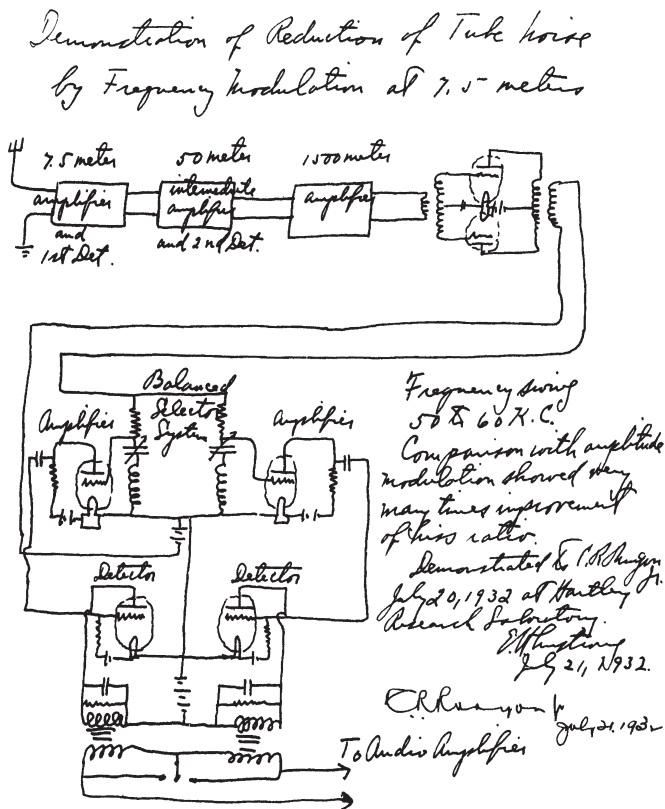 Demonstration of Reduction of Tube noise
by Frequency Modulation at 7.5 meters
7.5 meter
amplifier
and
1st Det.
50 meter
intermediate
amplifier
and 2nd Det.
1500 meter
amplifier
Balanced
Selector
System
Amplifier
Amplifier
Frequency swing
50 to 60 K.C.
Comparison with amplitude
modulation showed very
many times improvement
of hiss ratio.
Demonstrated to C.R. Runyon Jr.
July 20, 1932 at Hartley
Research Laboratory.
EH Armstrong
July 21, 1932.
Detector
Detector
C.R. Runyon Jr
July 21, 1932
To Audio Amplifier